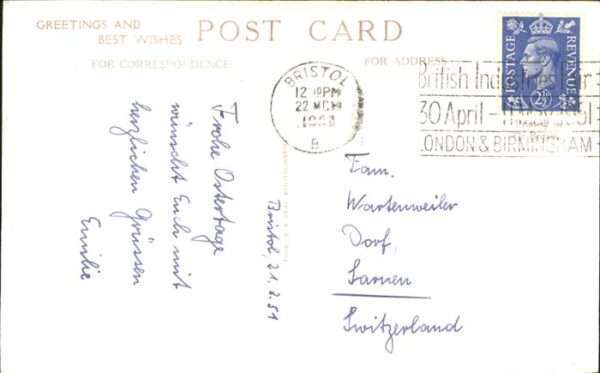 GREETINGS AND
BEST WISHES
POST CARD
FOR CORRESPONDENCE
FOR ADDRESS
POSTAGE
REVENUE
2½D
BRISTOL
12 PM
22 MCH
1951
B
British Industries Fair
30 April - 11 May 1951
LONDON & BIRMINGHAM
Frohe Ostertage
wünscht Euch mit
herzlichen Grüssen
Emilie
Bristol, 21.3.51
Fam.
Wartenweiler
Dorf,
Sarnen
Switzerland